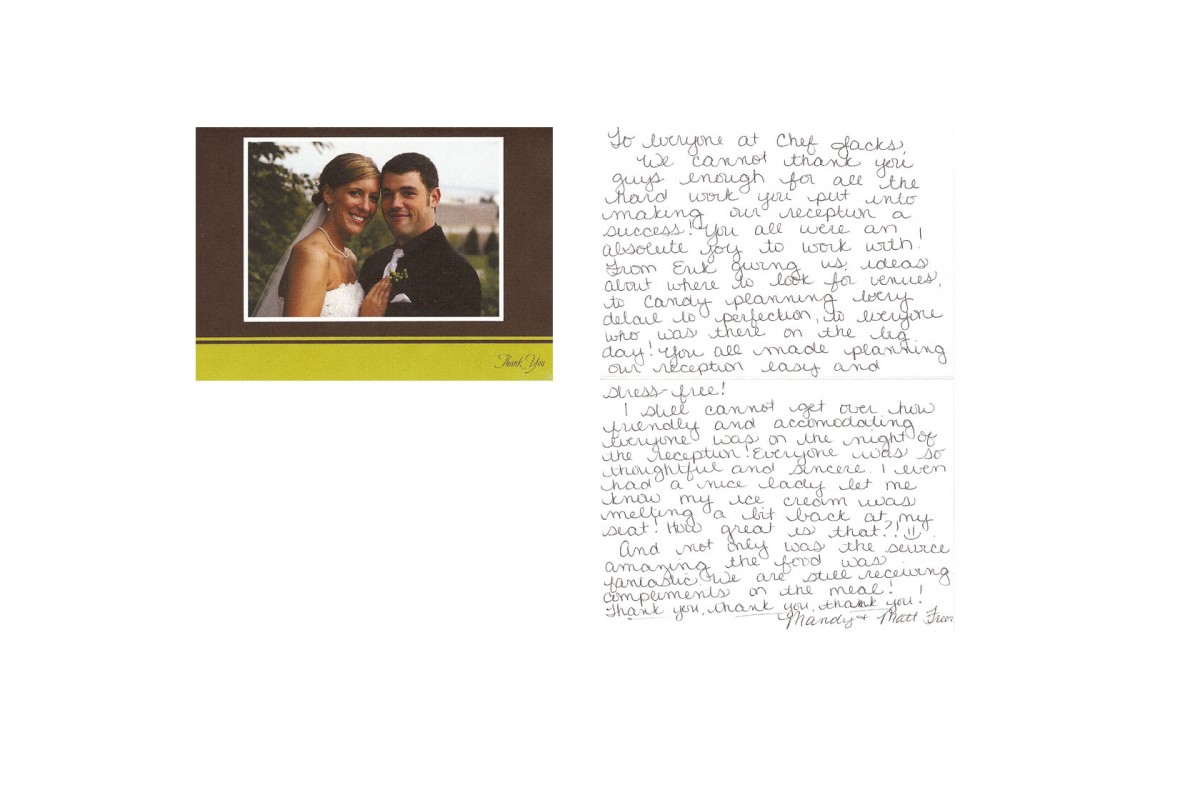 Thank You
To everyone at Chef Jacks,
We cannot thank you
guys enough for all the
hard work you put into
making our reception a
success! You all were an
absolute joy to work with!
From Erik giving us ideas
about where to look for venues,
to Candy planning every
detail to perfection, to everyone
who was there on the big
day! You all made planning
our reception easy and
stress-free!
I still cannot get over how
friendly and accomodating
everyone was on the night of
the reception! Everyone was so
thoughtful and sincere. I even
had a nice lady let me
know my ice cream was
melting a bit back at my
seat! How great is that?!
And not only was the service
amazing the food was
fantastic. We are still receiving
compliments on the meal!
Thank you, thank you, thank you!
Mandy & Matt